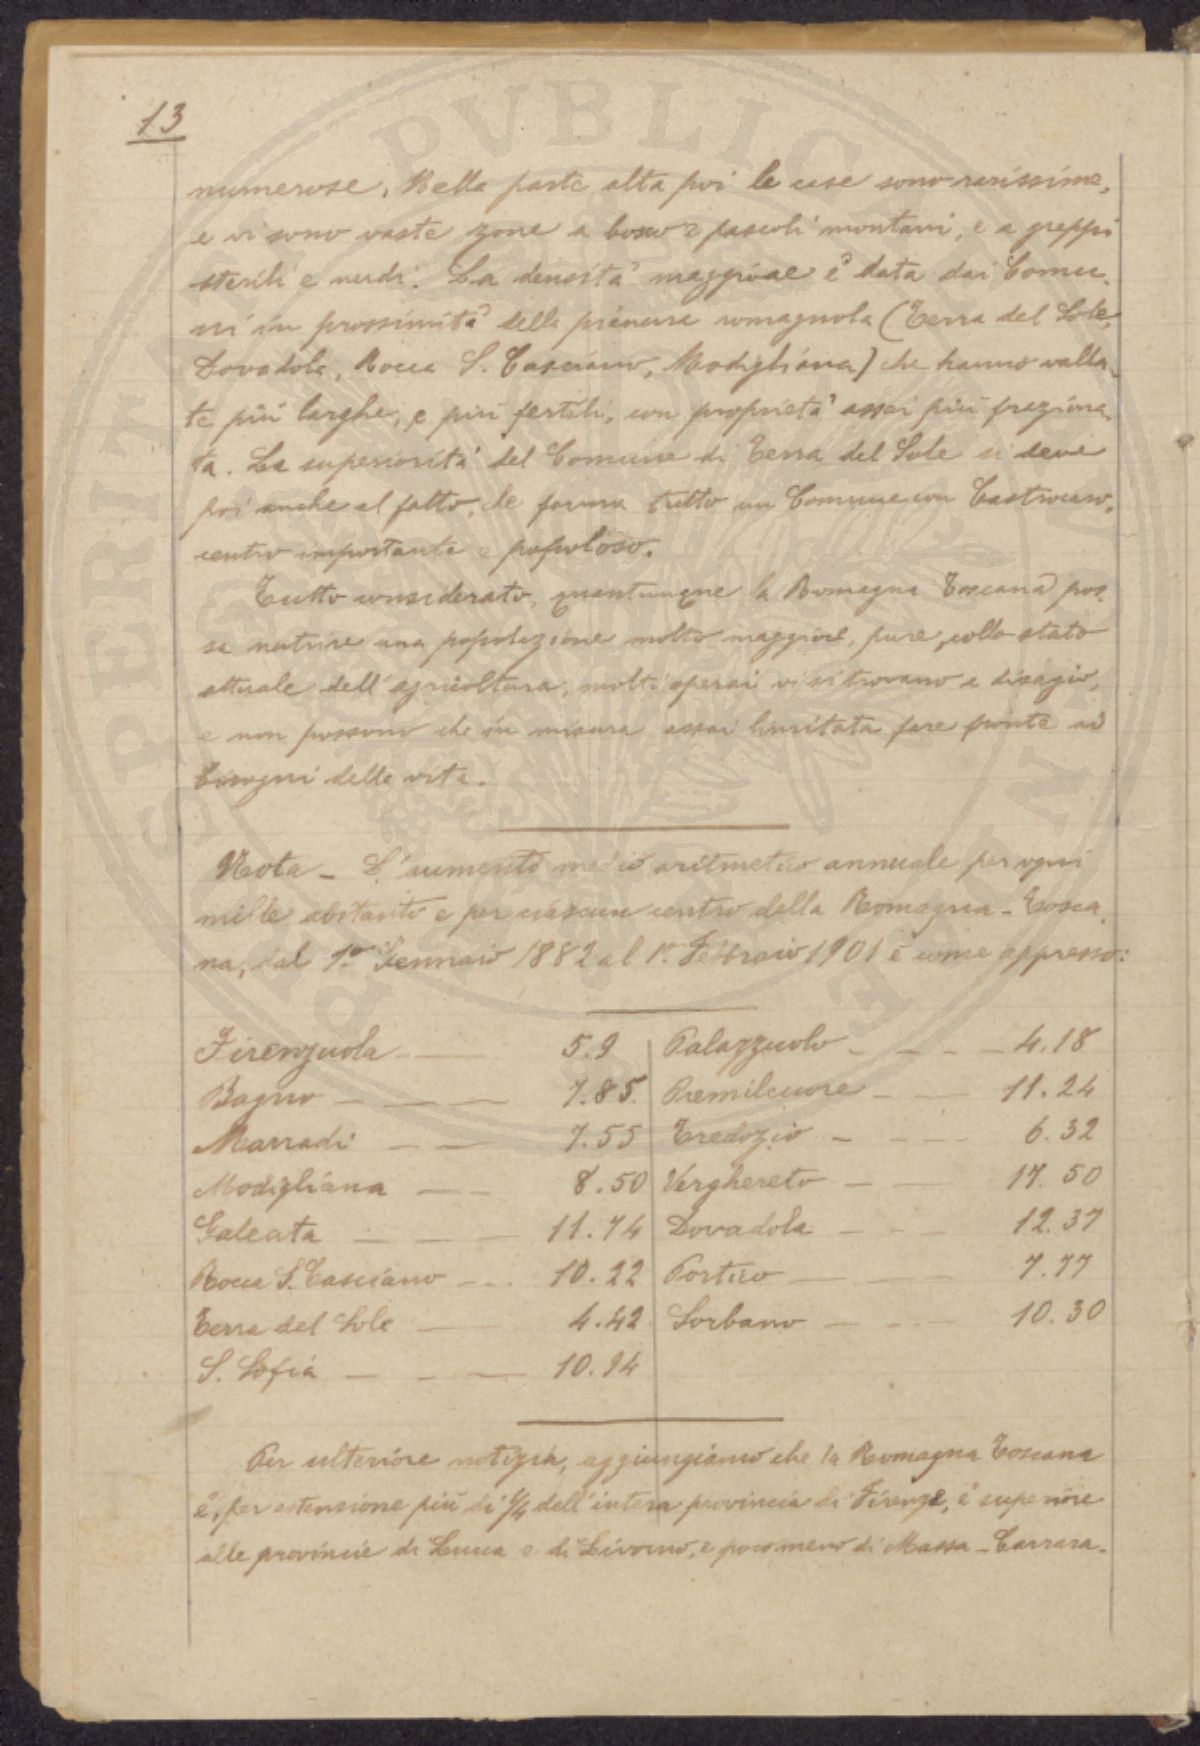 13
numerose. Nella parte alta poi le case sono rarissime,
e vi sono vaste zone a bosco e pascoli montani, e a greppi
sterili e nudi. La densità maggiore è data dai Comu-
ni in prossimità della pianura romagnola (Terra del Sole,
Dovadola, Rocca S. Casciano, Modigliana) che hanno valla-
te più larghe, e più fertili, con proprietà assai più fraziona-
ta. La superiorità del Comune di Terra del Sole si deve
poi anche al fatto, che forma tutto un Comune con Castrocaro,
centro importante e popoloso.
Tutto considerato, quantunque la Romagna Toscana pos-
sa nutrire una popolazione molto maggiore, pure, collo stato
attuale dell'agricoltura, molti operai vi si trovano a disagio,
e non possono che in misura assai limitata fare fronte ai
bisogni della vita.
Nota - L'aumento medio aritmetico annuale per ogni
mille abitanti e per ciascun centro della Romagna-Tosca-
na, dal 1° Gennaio 1882 al 1° Febbraio 1901 è come appresso:
Firenzuola — 5.9
Bagno — — — 7.85
Marradi — — 7.55
Modigliana — — 8.50
Galeata — — — 11.74
Rocca S. Casciano — - . 10.22
Terra del Sole — 4.42
S. Sofia — - — 10.94
Palazzuolo - - - — 4.18
Premilcuore — — 11.24
Tredozio - - — 6.32
Verghereto — — 17.50
Dovadola — — 12.37
Portico — — 7.77
Sorbano — - — 10.30
Per ulteriore notizia, aggiungiamo che la Romagna Toscana
è, per estensione più di 1/4 dell'intera provincia di Firenze, è superiore
alle provincie di Lucca e di Livorno, e poco meno di Massa-Carrara.
PROSPERITATI PVBLICAE